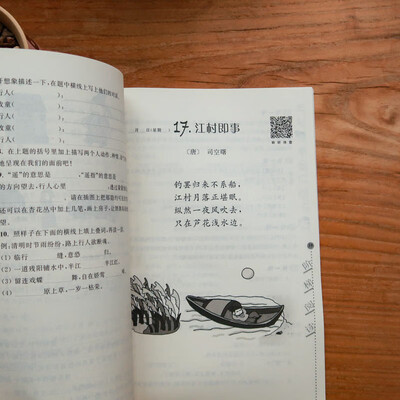 开想象描述一下，在题中横线上写上他们的对话。
行人（ ）：
牧童（ ）：
行人（ ）：
牧童（ ）：
8. 在上题的括号里加上描写两个人动作、神情
地呈现在我们的面前吧！
9. “遥”的意思是 ，“遥指”的意思是
的方向望去，行人心里
。请在插图上把
还可以在杏花丛中加上几笔，画上房子，
10. 照样子在下面的横线上填上叠词，
例：清明时节雨纷纷，路上行人欲断魂。
（1）临行 缝，意恐 归。
（2）一道残阳铺水中，半江 半江
（3）留连戏蝶 舞，自在娇莺
（4） 原上草，一岁一枯荣。
17. 江村即事
〔唐〕 司空曙
钓罢归来不系船，
江村月落正堪眠。
纵然一夜风吹去，
只在芦花浅水边。